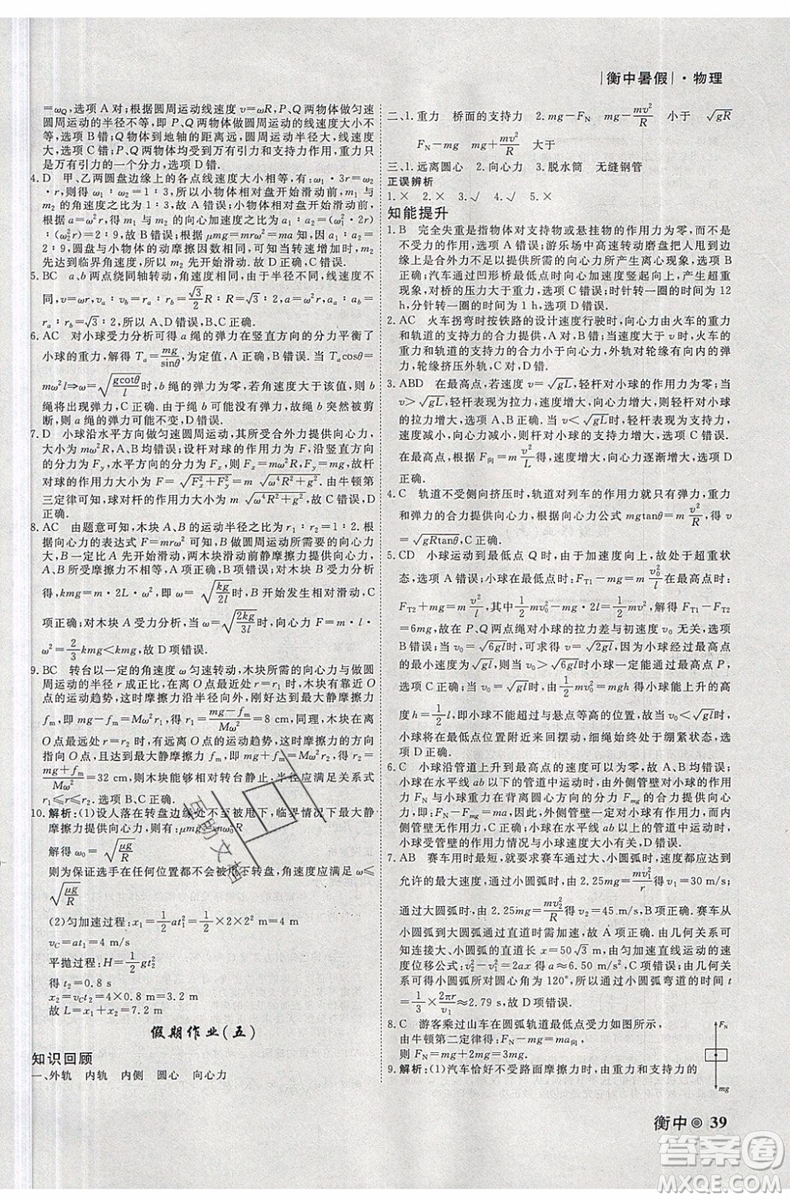 |衡中暑假|·物理
=ω_Q,选项A对;根据圆周运动线速度v=ωR,P、Q两物体做匀速
圆周运动的半径不等,即P、Q两物体做圆周运动的线速度大小
不等,选项B错;Q物体到地轴的距离远,圆周运动半径大,线速度
大,选项C错;P、Q两物体均受万有引力和支持力作用,重力只是
万有引力的一个分力,选项D错.
4.D 甲、乙两圆盘边缘上的各点线速度大小相等,有:ω₁·3r=ω₂
·r,则得ω₁:ω₂=1:3,所以小物体相对盘开始滑动前,m₁与
m₂的角速度之比为1:3,故A、B错误;小物体相对盘开始滑动
前,根据a=ω²r得:m₁与m₂的向心加速度之比为a₁:a₂=(ω₁²·2r):(ω₂²r)=
2:9,故C错误;根据μmg=mrω²知,μg=rω²,因为圆
盘与小物体的动摩擦因数相同,且当转速增加时,m₂的角速度先
达到临界角速度,所以m₂先开始滑动.故D正确.
5.BC a、b两点绕同轴转动,角速度相等,由于半径不同,线速度不
同,v=ωr,v_a:v_b=r_a:r_b=√3/2 R:R=√3:2,a=ω²r,a_a:a_b
=r_a:r_b=√3:2,所以A、D错误,B、C正确.
6.AC 对小球受力分析可得a绳的弹力在竖直方向的分力平衡了
小球的重力,解得T_a=mg/sinθ,为定值,A正确,B错误.当T_acosθ=
mω²l⇒ω=√(gcotθ/l)时,b绳的弹力为零,若角速度大于该值,则b绳
将出现弹力,C正确.由于绳b可能没有弹力,故绳b突然被剪断,
a绳的弹力可能不变,D错误.
7.D 小球沿水平方向做匀速圆周运动,其所受合外力提供向心力,
大小为mω²R,即小球受到的合外力大小为mω²R,选项A、B错
误;小球受到的重力竖直向下,且杆对球的作用力在竖直方向的
分力为F_y,水平方向的分力为F_x,则有:F_x=mω²R,F_y=mg,故
杆对球的作用力大小为F=√(F_x²+F_y²)=m√(ω⁴R²+g²).由牛顿第
三定律可知,球对杆的作用力大小为m√(ω⁴R²+g²),选项D正确.
8.AC 由题意可知,木块A、B的运动半径之比为r₁:r₂=1:2,
根据向心力的表达式F=mrω²,可得r₁:r₂=F₁:F₂=1:2,故
B一定比A先开始滑动,选项A正确;两木块滑动前静摩擦力提
供向心力,两木块所受的静摩擦力不相等,选项B错误;对木块B
分析得,kmg=m·2L·ω²,即ω=√(kg/2L)时,木块B开始相对滑
动,选项C正确;根据向心力公式F=m·l·ω²,当ω=√(2kg/3l)时,F
=2/3 kmg<kmg,故D项错误.
9.BC 转台以一定的角速度ω匀速转动,木块所需的向心力与做圆
周运动的半径r成正比,在离O点最近处r=r₁时,木块有向O点
的运动趋势,这时摩擦力沿半径向外,刚好达到最大静摩擦力
f_m,即mg-f_m=Mω²r₁,得r₁=(mg-f_m)/Mω²=8 cm,同理,木块在离
O点最远处r=r₂时,有远离O点的运动趋势,这时摩擦力的方向
指向O点,且达到最大静摩擦力f_m,即mg+f_m=Mω²r₂,得r₂=
(mg+f_m)/Mω²=32 cm,则木块能够相对转台静止,应满足关系式
r₁≤r≤r₂.选项B、C正确.
10.解析:(1)设人落在转盘边缘处不至被甩下,临界情况下最大静
摩擦力提供向心力,则有:μmg=mω₀²R
解得ω₀=√(μg/R)
则为保证选手在任何情况下都不会被甩下转盘,角速度应满足ω≤
√(μg/R)
(2)匀加速过程:x₁=1/2 at₁²=1/2×2×2² m=4 m
v_C=at₁=4 m/s
平抛过程:H=1/2 gt₂²
得t₂=0.8 s
x₂=v_Ct₂=4×0.8 m=3.2 m
故L=x₁+x₂=7.2 m
假期作业(五)
知识回顾
一、外轨 内轨 内侧 圆心 向心力
二、1.重力 桥面的支持力 2.mg-F_N mg-mv²/R 小于 √gR
F_N-mg mg+mv²/R 大于
三、1.远离圆心 2.向心力 3.脱水筒 无缝钢管
正误辨析
1.× 2.× 3.√ 4.√ 5.×
知能提升
1.B 完全失重是指物体对支持物或悬挂物的作用力为零,而不是
不受力的作用,选项A错误;游乐场中高速转动磨盘,是把人甩到
边上去是因为人所需要的向心力大于所提供的向心力而发生离心现象,选项
B正确;汽车通过凹形桥最低点时向心加速度竖起向上,处于超重状态,
对桥的压力大于重力,选项C错误;时针转一圈的时间为12
h,分针转一圈的时间为1 h,选项D错误.
2.AC 火车拐弯时按铁路的设计速度行驶时,向心力由火车的重
力和轨道的支持力的合力提供,A、C正确,B错误;当速度大于设
计速度时,火车需要的向心力增大,轮缘挤压外轨,火车的重力、
轨道的支持力与外轨对轮缘有向内的弹力,轮缘挤压外轨,D错误.
3.ABD 在最高点,若速度v=√gL,轻杆对小球的作用力为零;当
v>√gL,轻杆对小球表现为拉力,速度增大,向心力增大,则杆对
小球的拉力增大,选项A、B正确.在最高点,若速度v<√gL,杆子
表现为支持力,速度减小,向心力减小,则杆对小球的支持力增大,选项C错误.
在最高点,根据F_向=mv²/L,速度增大,向心力逐渐增大,选项D
正确.
4.C 轨道不受侧向挤压时,轨道对列车的作用力就只有弹力,重力
和弹力的合力提供向心力,根据向心力公式mgtanθ=mv²/R,得v
=√(gRtanθ),C正确.
5.CD 小球运动到最低点Q时,由于加速度向上,故处于超重状
态,选项A错误;小球在最低点时:F_T1-mg=mv₀²/l;在最高点时:
F_T2+mg=mv²/l,其中1/2 mv₀²-mg·2l=1/2 mv²,解得F_T1-F_T2
=6mg,故在P、Q两点绳对小球的拉力差与初速度v₀无关,选项
B错误;当v₀=√6gl时,得v=√2gl,因为小球能经过最高点的最小
速度为√gl,则当v₀>√6gl时小球一定能通过最高点P,
选项C正确;当v₀=√gl时,由1/2 mv₀²=mgh得小球能上升的
高度h=1/2 l,即小球不能超过与悬点等高的位置,故当v₀=√gl
时,小球将在最低点位置附近来回摆动,细绳始终处于绷紧状态,选项
D正确.
6.C 小球沿管道上升到最高点的速度可以为零,故A、B均错误;小
球在水平线ab以下的管道中运动时,由外侧管壁对小球的作用
力F_N与小球重力在背离圆心方向的分力F_mg的合力提供向心
力,即:F_N-F_mg=ma,因此,外侧管壁一定对球有作用力,而内侧管
壁无作用力,C正确;小球在水平线ab以上的管道中运动时,小
球受管壁的作用力与小球速度大小有关,D错误.
7.AB 赛车用时最短,就要求赛车通过大、小圆弧时,速度都应达到
允许的最大速度,通过小圆弧时,由2.25mg=mv₁²/r得v₁=30
m/s;通过大圆弧时,由2.25mg=mv₂²/R得v₂=45 m/s,B正确.赛车从
小圆弧到大圆弧通过直道时加速,故A正确.由几何关系可
知连接大、小圆弧的直道长x=50√3 m,由匀加速直线运动的速
度位移公式:v₂²-v₁²=2ax得a≈6.50 m/s²,C错误;由几何关系可
得小圆弧所对圆心角为120°,所以通过小圆弧弯道的时间t=
1/3×2πr/v₁=2.79 s,故D项错误.
8.C 游客乘过山车在圆弧轨道最低点的受力如图所示.
由牛顿第二定律得F_N-mg=ma_向,
则F_N=mg+2mg=3mg.故C正确.
9.解析:(1)汽车恰好不受路面摩擦力时,由重力
F_N
mg
衡中 39
答案圈
MXQE.COM